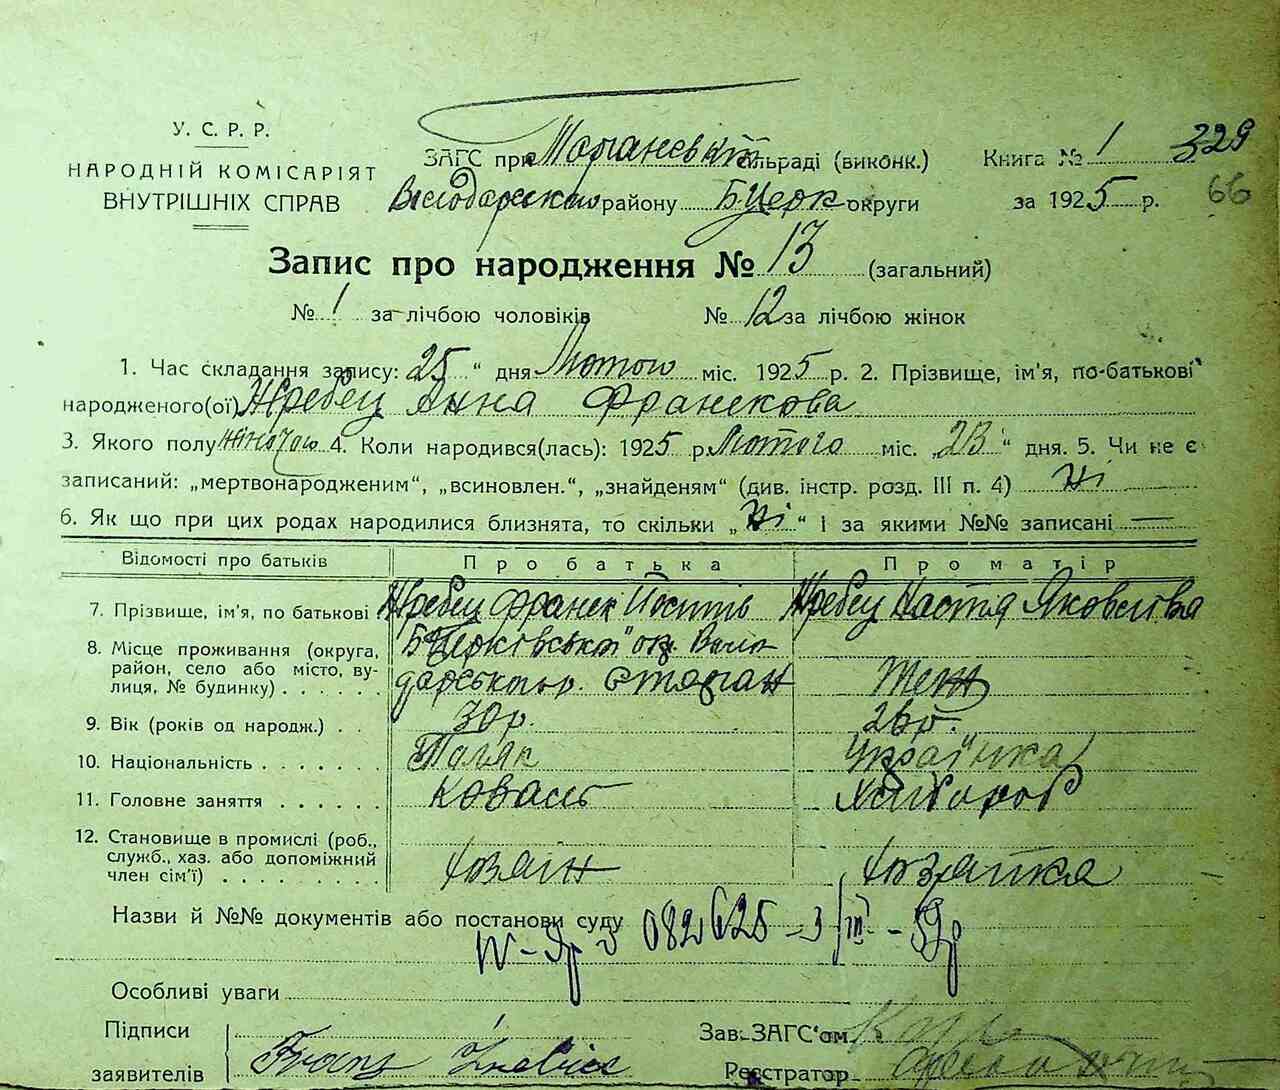 У. С. Р. Р.
НАРОДНІЙ КОМІСАРІЯТ
ВНУТРІШНІХ СПРАВ
ЗАГС при сільраді (виконк.) Книга № 1 329
району Б. Церк округи за 1925 р. 66
Запис про народження № 13 (загальний)
№ 1 за лічбою чоловіків № 12 за лічбою жінок
1. Час складання запису: 25 " дня Лютого міс. 1925 р. 2. Прізвище, ім'я, по-батькові
народженого(ої) Жребец Анна Франкова
3. Якого полу жіночого 4. Коли народився(лась): 1925 р. Лютого міс. „23" дня. 5. Чи не є
записаний: „мертвонародженим", „всиновлен.", „знайденям" (див. інстр. розд. III п. 4) Ні
6. Як що при цих родах народилися близнята, то скільки „Ні" і за якими №№ записані —
Відомості про батьків Про батька Про матір
7. Прізвище, ім'я, по батькові Жребец Франек Жребец Настя Яковлева
8. Місце проживання (округа,
район, село або місто, ву-
лиця, № будинку) . . . . . . Теж
9. Вік (років од народж.) . . 30 р. 26 р.
10. Національність . . . . . . Поляк Українка
11. Головне заняття . . . . . . Коваль Хлібороб
12. Становище в промислі (роб.,
служб., хаз. або допоміжний
член сім'ї) . . . . . . . . . . Хозяїн Хозяйка
Назви й №№ документів або постанови суду
082625 - 3/III - 59р
Особливі уваги
Підписи Зав. ЗАГС'ом
заявителів Реєстратор